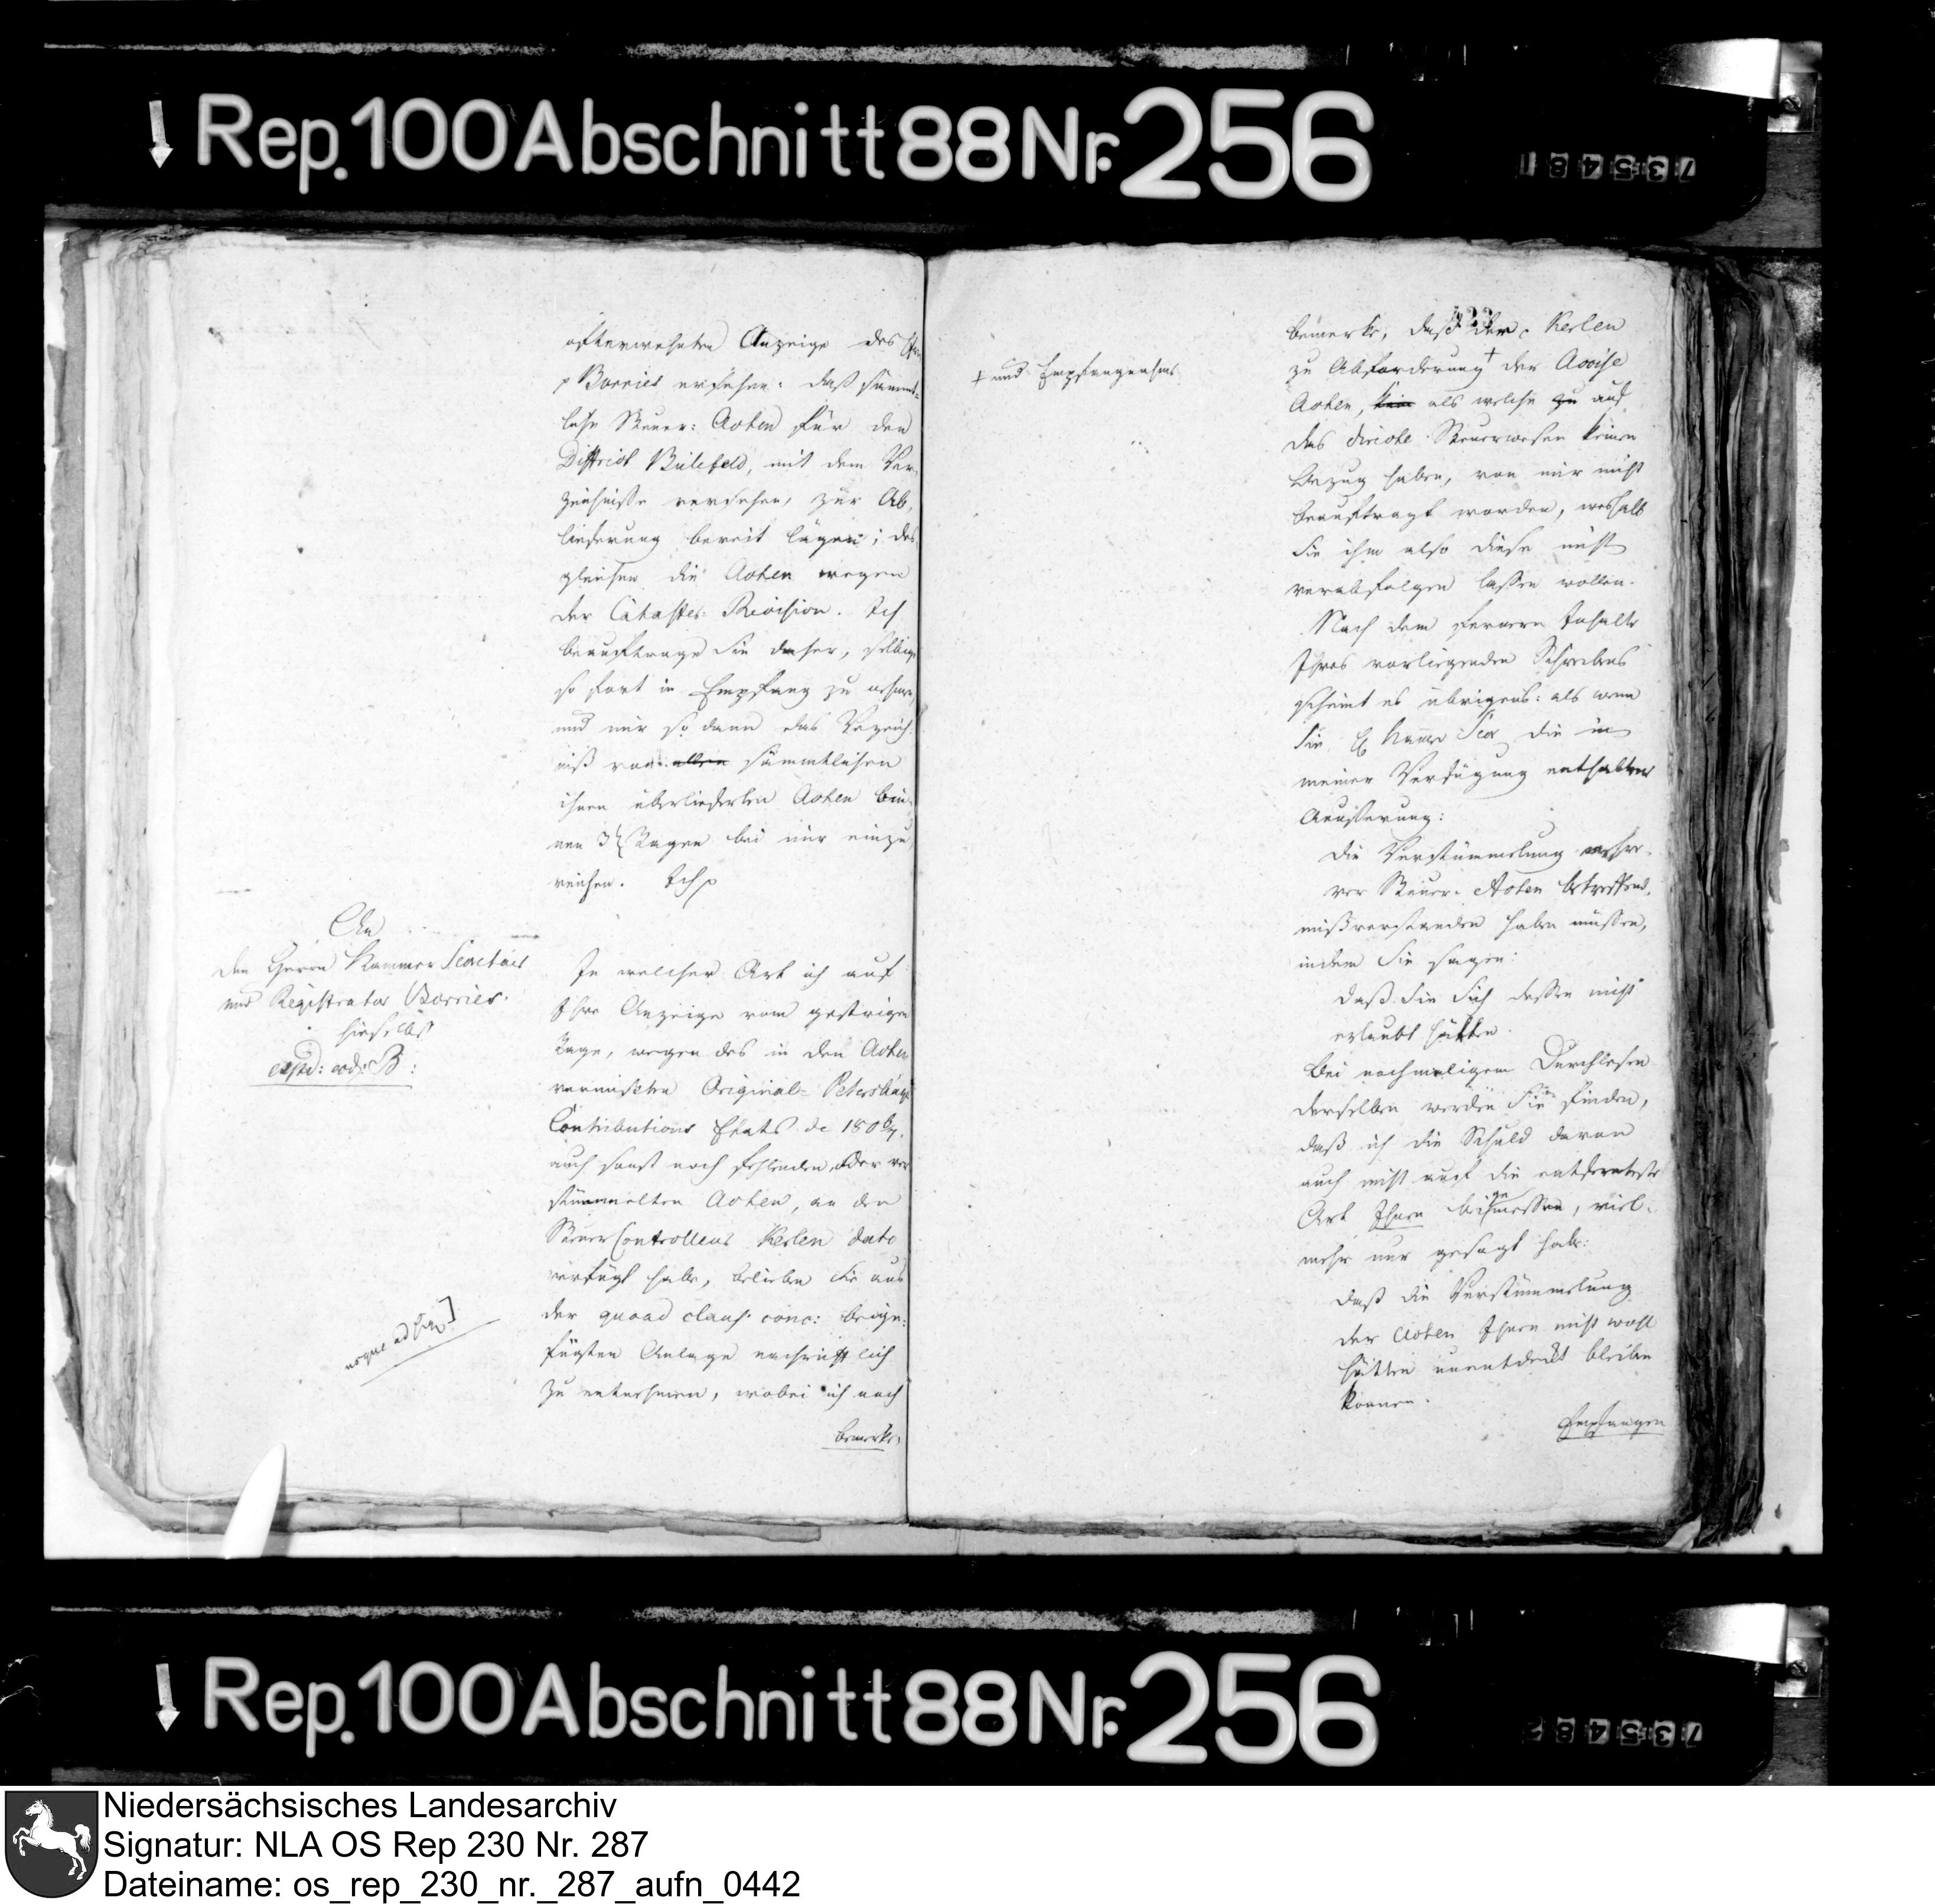 Rep. 100 Abschnitt 88 Nr. 256
735481
ofterwehnten Anzeige des
p Borries ersehen: daß sämmt-
liche Steuer: Acten für den
District Bielefeld, mit dem Ver-
zeichnisse versehen, zur Ab-
lieferung bereit lägen; des
gleichen die Acten wegen
der Cataster Revision. Ich
beauftrage Sie daher, selbige
so fort in Empfang zu nehmen,
und mir so dann das Verzeich-
niß von allen sämmtlichen
ihnen überlieferten Acten bin-
nen 3 Tagen bei mir einzu
reichen. Ich p
An
den Herrn Kammer Secretair
und Registrator Borries.
hieselbst
In welcher Art ich auf
Ihre Anzeige vom gestrigen
Tage, wegen des in den Acten
vermißten Original- Petershag.
Contributions Etats de 1806/7.
auch sonst noch fehlenden oder ver
stümmelten Acten, an den
Steuer Controlleur Kerlen dato
verfügt habe, belieben Sie aus
der quoad claus. conc: beige-
fügten Anlage nachrichtlich
zu entnehmen, wobei ich noch
usque ad fin]
bemerke,
423
bemerke, daß der p. Kerlen
zu Abforderung + der Accise
+ und Empfangnahme
Acten, als welche zu auf
das directe Steuerwesen keinen
Bezug haben, von mir nicht
beauftragt worden, weshalb
Sie ihm also diese nicht
verabfolgen lassen wollen.
Nach dem ferneren Inhalte
Ihres vorliegenden Schreibens
scheint es übrigens: als wenn
Sie, H Kammer Secr die in
meiner Verfügung enthaltene
Aeusserung:
die Verstümmelung mehre-
rer Steuer. Acten betreffend,
mißverstanden haben müssen,
indem Sie sagen:
daß Sie Sich dessen nicht
erlaubt hätten.
Bei nochmaligem Durchlesen
derselben werden Sie finden,
daß ich die Schuld davon
auch nicht auf die entfernteste
Art Ihnen beigemessen, viel-
mehr nur gesagt habe:
daß die Verstümmelung
der Acten Ihnen nicht wohl
hätten unentdeckt bleiben
können.
Empfangen
Rep. 100 Abschnitt 88 Nr. 256
735482
Niedersächsisches Landesarchiv
Signatur: NLA OS Rep 230 Nr. 287
Dateiname: os_rep_230_nr._287_aufn_0442